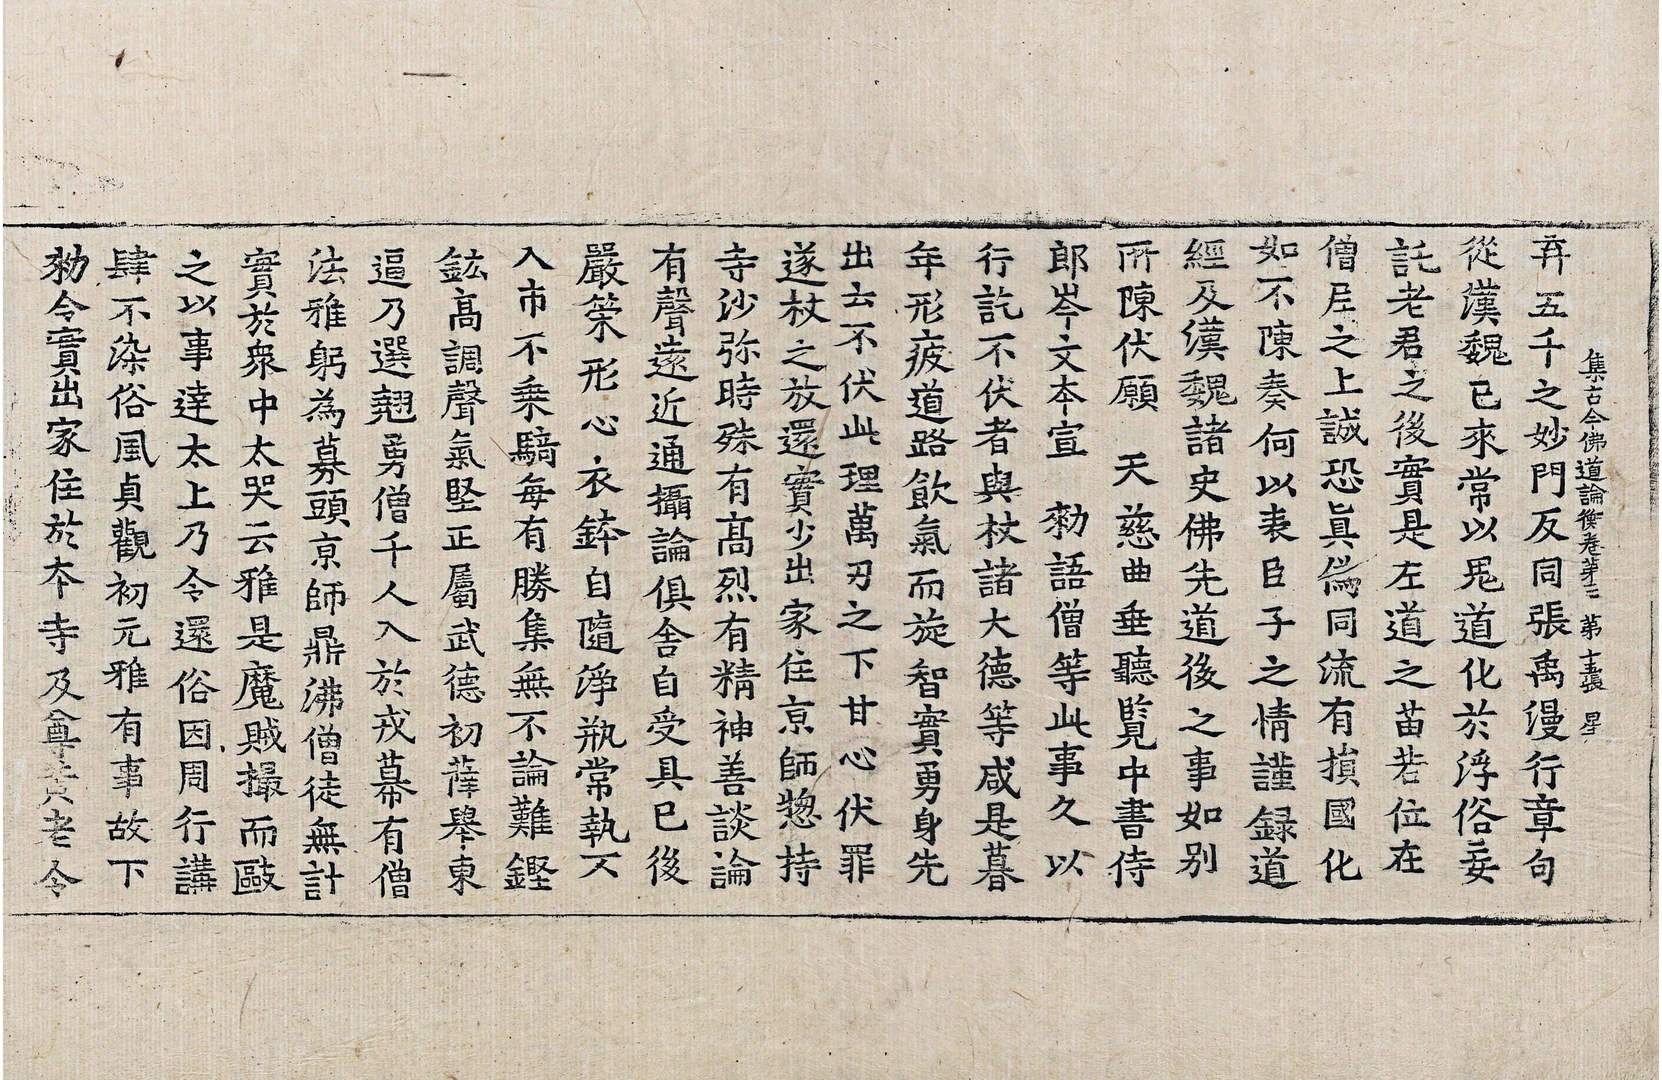 集古今佛道論衡卷第三　第十五張　星
弃五千之妙門反同張禹漫行章句
從漢魏已來常以鬼道化於浮俗妄
託老君之後實是左道之苗若位在
僧尼之上誠恐眞僞同流有損國化
如不陳奏何以表臣子之情謹録道
經及漢魏諸史佛先道後之事如別
所陳伏願　天慈曲垂聽覽中書侍
郎岑文本宣　勑語僧等此事久以
行訖不伏者與杖諸大德等咸是暮
年形疲道路飲氣而旋智實勇身先
出云不伏此理萬刃之下甘心伏罪
遂杖之放還實少出家住京師惣持
寺沙弥時殊有髙烈有精神善談論
有聲遠近通攝論俱舍自受具已後
嚴策形心衣鉢自隨淨瓶常執不
入市不乗騎每有勝集無不論難鏗
鈜髙調聲氣堅正屬武德初薛舉東
逼乃選翹勇僧千人入於戎幕有僧
法雅躬為募頭京師鼎沸僧徒無計
實於衆中大哭云雅是魔賊撮而敺
之以事達太上乃令還俗因周行講
肆不染俗風貞觀初元雅有事故下
勑令實出家住於夲寺及尊黄老令